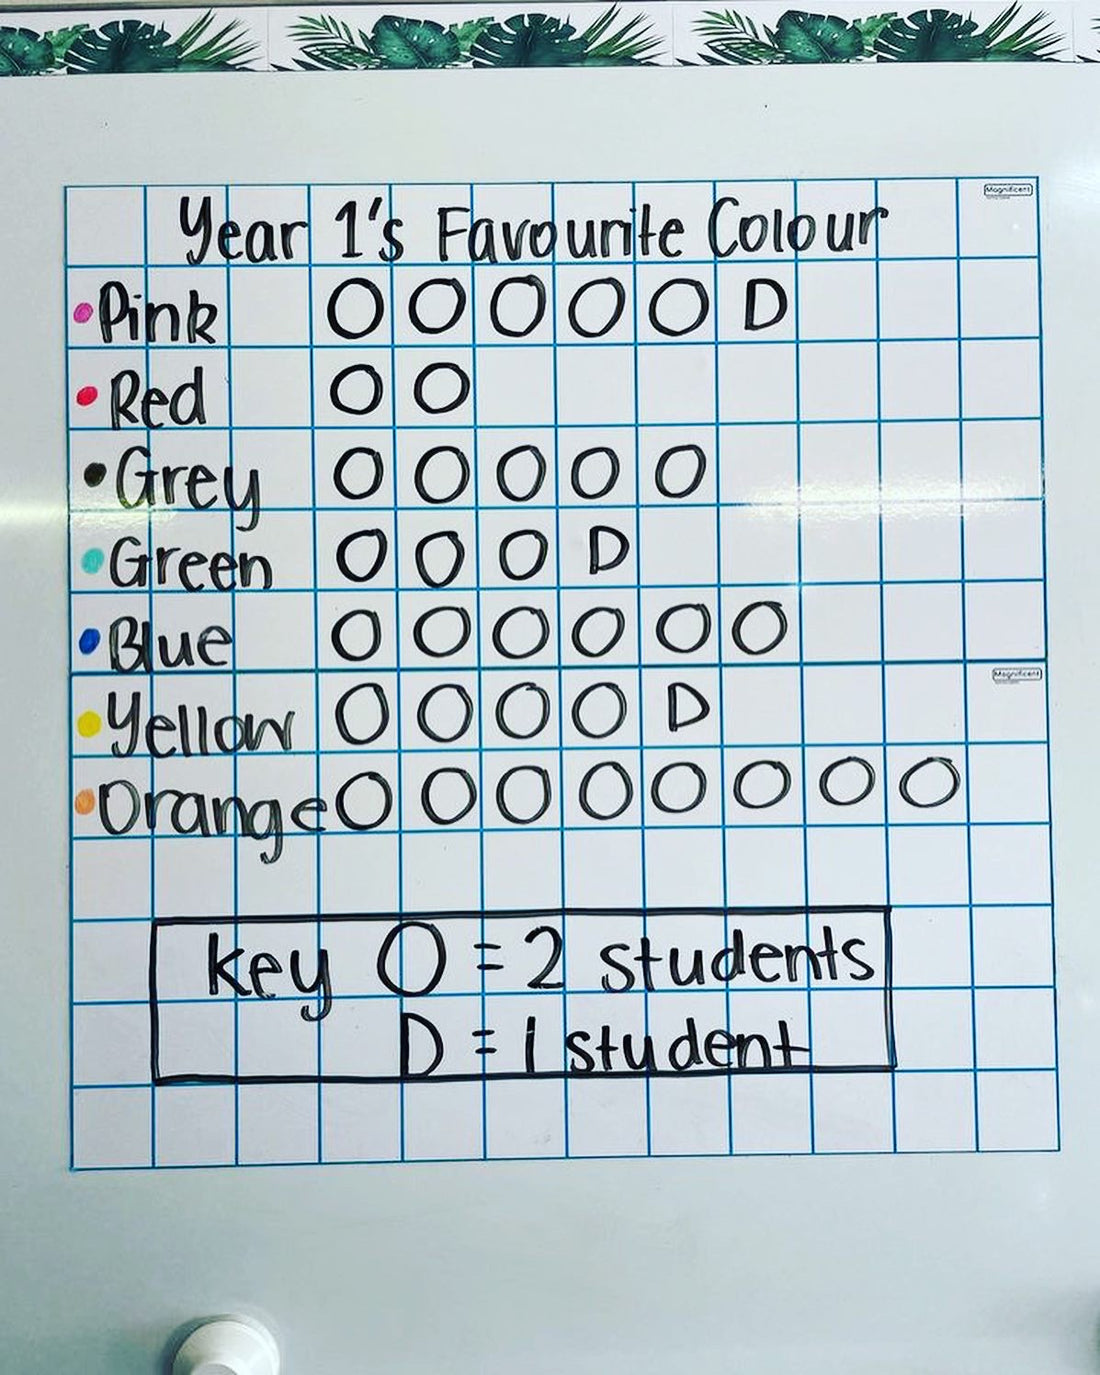 Magnificent
Year 1's Favourite Colour
Pink O O O O O D
Red O O
Grey O O O O O
Green O O O D
Blue O O O O O O
Magnificent
Yellow O O O O D
Orange O O O O O O O O
key O = 2 students
D = 1 student